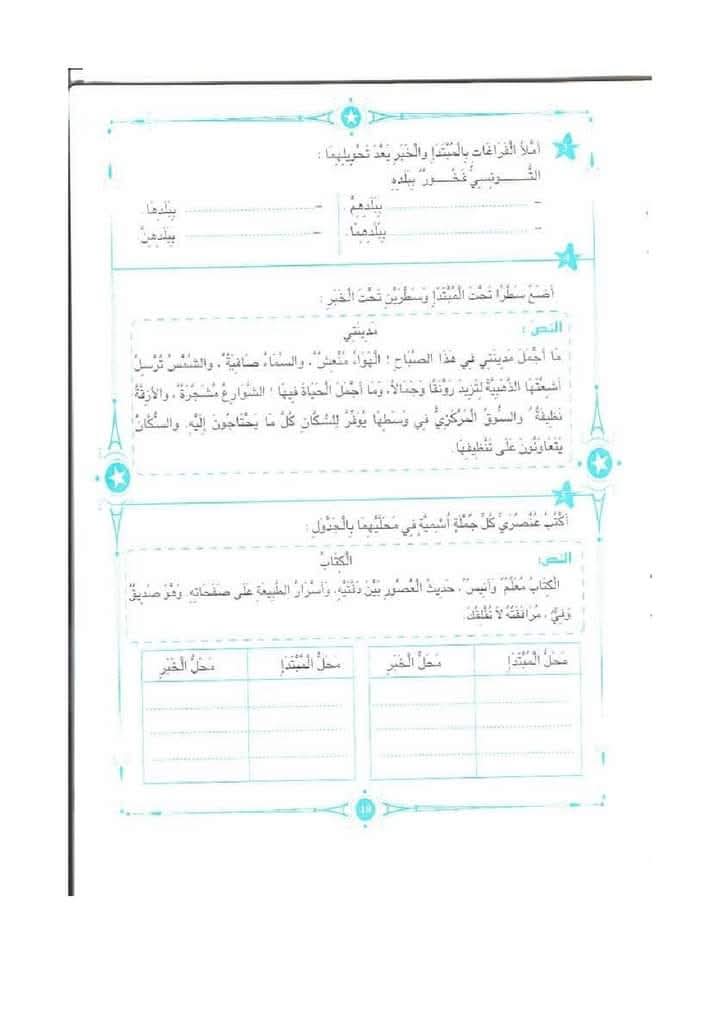 أَمْلَأُ الْفَرَاغَاتِ بِالْمُبْتَدَإِ وَالْخَبَرِ بَعْدَ تَحْوِيلِهِمَا :
التُّــــونِسِيُّ فَخُــــورٌ بِبَلَدِهِ
- ........................ بِبَلَدِهِمْ .
- ........................ بِبَلَدِهَا.
- ........................ بِبَلَدِهِمَا.
- ........................ بِبَلَدِهِنَّ
4
أَضَعُ سَطْرًا تَحْتَ الْمُبْتَدَإِ وَسَطْرَيْنِ تَحْتَ الْخَبَرِ :
النص :
مَدِينَتِي
مَا أَجْمَلَ مَدِينَتِي فِي هَذَا الصَّبَاحِ ! الْهَوَاءُ مُنْعِشٌ، وَالسَّمَاءُ صَافِيَةٌ، وَالشَّمْسُ تُرْسِلُ
أَشِعَّتَهَا الذَّهَبِيَّةَ لِتَزِيدَ رَوْنَقًا وَجَمَالاً، وَمَا أَجْمَلَ الْحَيَاةَ فِيهَا ! الشَّوَارِعُ مُشَجَّرَةٌ، وَالأَزِقَّةُ
نَظِيفَةٌ وَالسُّوقُ الْمَرْكَزِيُّ فِي وَسَطِهَا يُوَفِّرُ لِلسُّكَّانِ كُلَّ مَا يَحْتَاجُونَ إِلَيْهِ. وَالسُّكَّانُ
يَتَعَاوَنُونَ عَلَى تَنْظِيفِهَا.
أَكْتُبُ عُنْصُرَيْ كُلِّ جُمْلَةٍ اُسْمِيَّةٍ فِي مَحَلَّيْهِمَا بِالْجَدْوَلِ :
النص:
الْكِتَابُ
الْكِتَابُ مُعَلِّمٌ وَأَنِيسٌ، حَدِيثُ الْعُصُورِ بَيْنَ دَفَّتَيْهِ، وَأَسْرَارُ الطَّبِيعَةِ عَلَى صَفَحَاتِهِ. وَهْوَ صَدِيقٌ
وَفِيٌّ، مُرَافَقَتُهُ لاَ تُقْلِقُكَ.
مَحَلُّ الْمُبْتَدَإِ
مَحَلُّ الْخَبَرِ
مَحَلُّ الْمُبْتَدَإِ
مَحَلُّ الْخَبَرِ